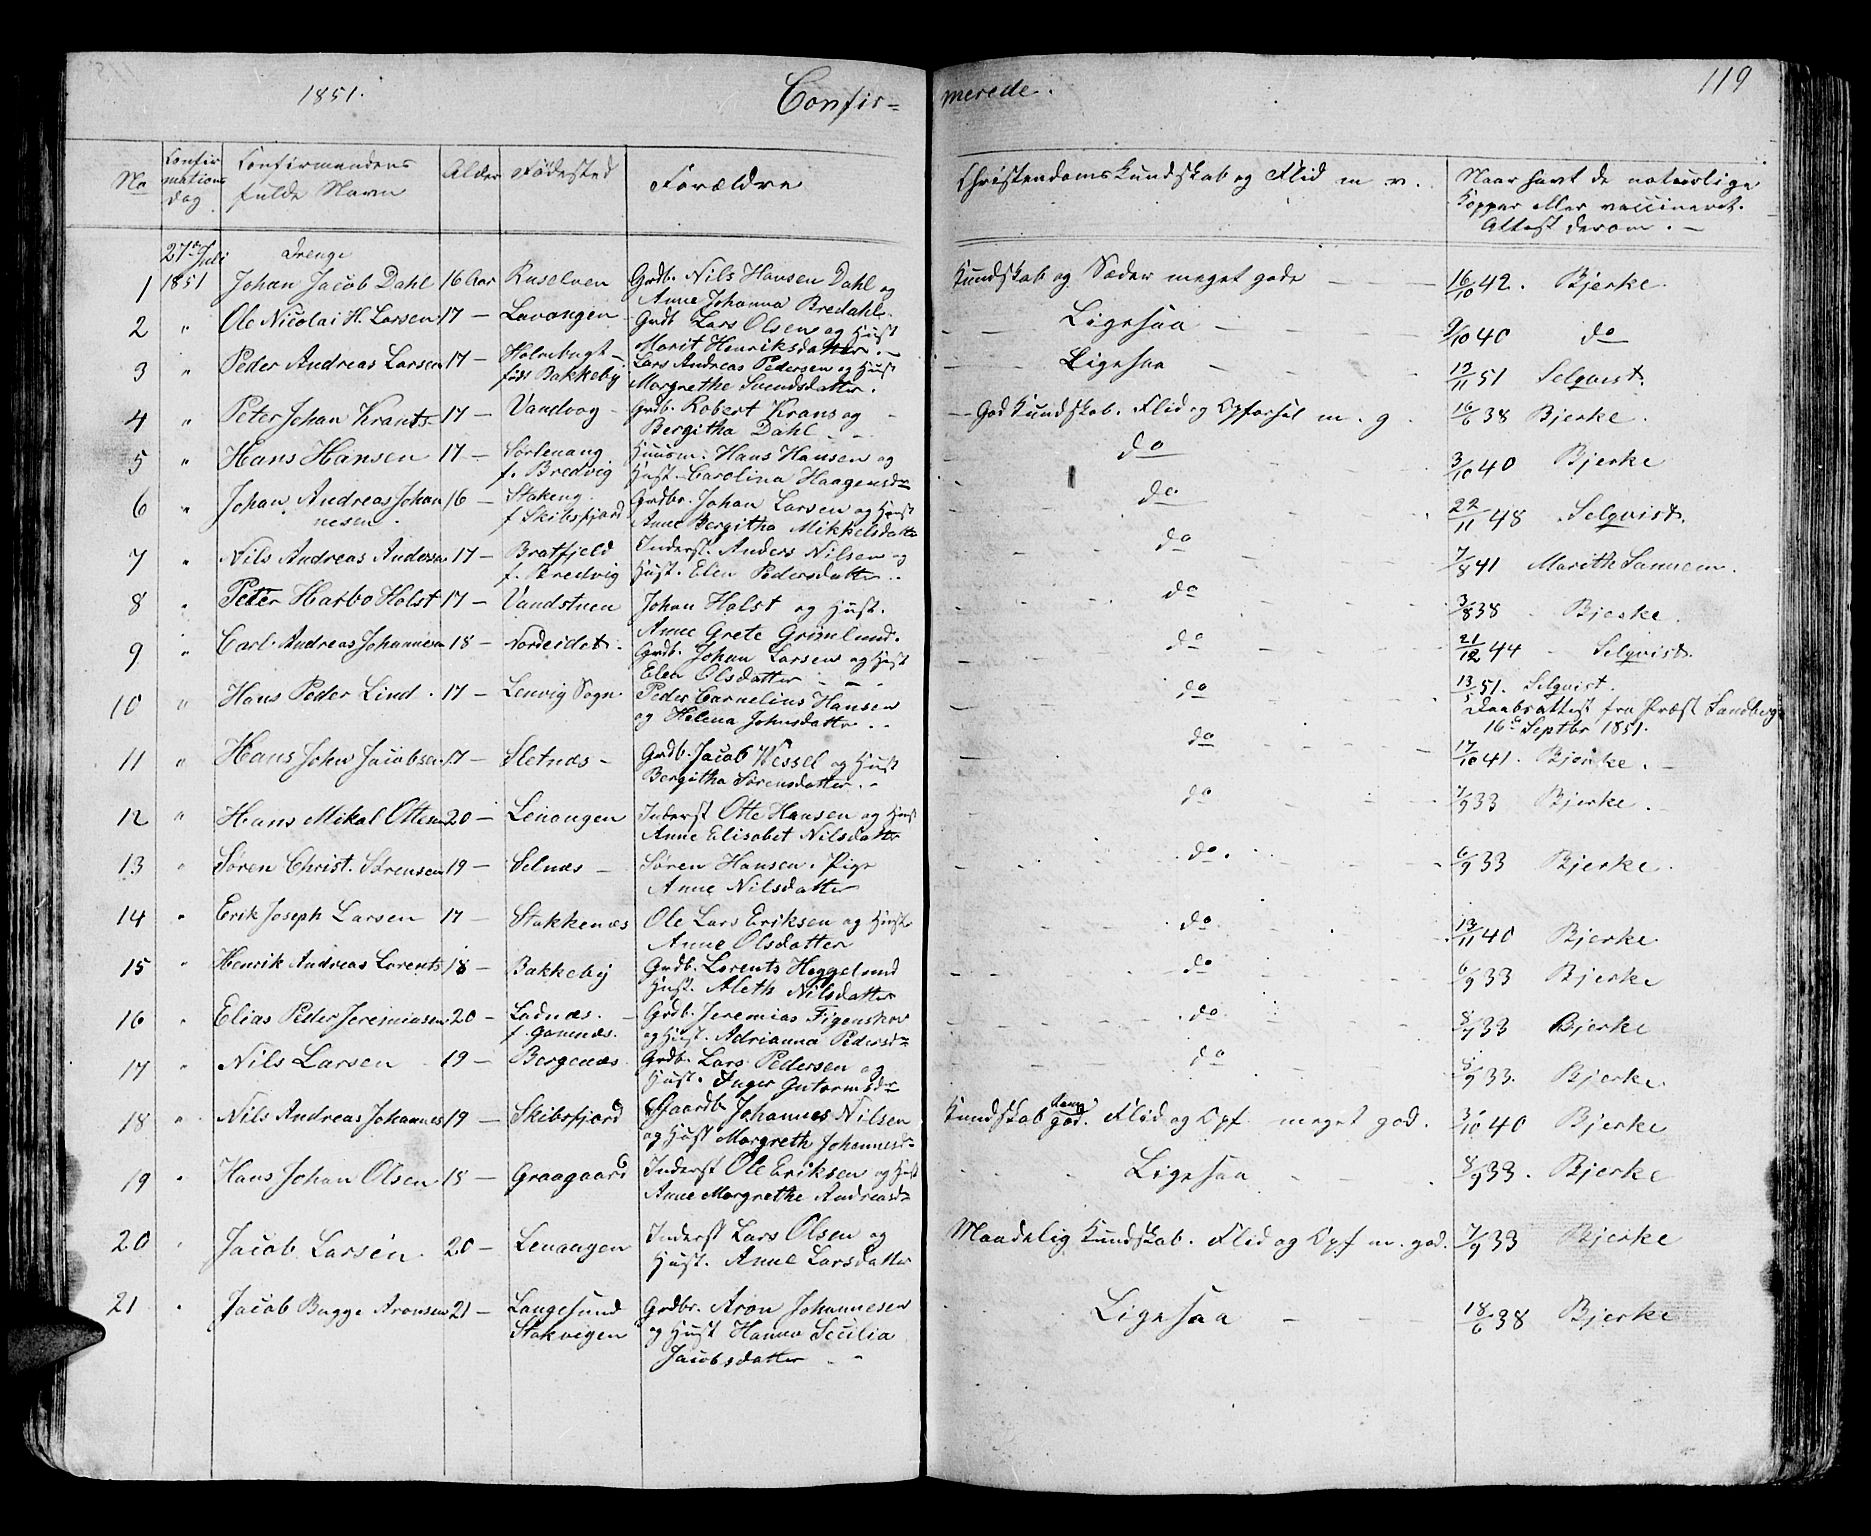 1851.
Confir=
merede.
119
No
Confir
mations
Dag
Confirmandens
fulde Navn
Alder
Fødested
Forældre
Christendomskundskab og Flid m. v.
Naar havt de naturlige
Kopper eller vaccineret.
Attest derom. —
27de Juli
Drenge
1 1851 Johan Jacob Dahl 16 Aar Kuselven Grdb. Nils Hansen Dahl og
Anne Johanna Bredahl.
Kundskab og Sæder meget gode — — — 16/10 42. Bjerke
2 " Ole Nicolai H. Larsen 17 — Lavangen Grdb Lars Olsen og Hust
Marit Henriksdatter. —
Ligesaa 9/10 40 do
3 " Peder Andreas Larsen 17 — Holmbugt —
født Bakkeby
Lars Andreas Pedersen og Hust
Margrethe Svendsdatter.
Ligesaa 13/11 51 Selqvist.
4 " Peter Johan Krants 17 — Vandvag — Grdb. Robert Krans og
Bergitha Dahl
— God Kundskab. Flid og Opførsel m. g. 16/6 38 Bjerke.
5 " Hans Hansen 17 — Sørlenang
f. Bredvig
Huusm: Hans Hansen og
Hust. Carolina Haagensdr
do 3/10 40 Bjerke
6 " Johan Andreas Johan
nesen.
16 — Stakeng.
f. Skibsfjord
Grdbr. Johan Larsen og Hust
Anne Bergitha Mikkelsdatter
do 22/11 48 Selqvist.
7 " Nils Andreas Andersen 17 — Bratfjeld
f. Bredvig
Inderst. Anders Nilsen og
Hust. Elen Pedersdatter.
do 7/8 41 Marith Sannem.
8 " Peter Harbo Holst 17 — Vandstuen Johan Holst og Hust.
Anne Grete Grønlund.
do 3/8 38 Bjerke.
9 " Carl Andreas Johannesen 18 — Nordeidet. Grdb. Johan Larsen og Hust
Elen Olsdatter
do 21/12 44 Selqvist.
10 " Hans Peder Lind. 17 — Lenvig Sogn. Peder Cornelius Hansen
og Helena Johnsdatter
do 13/5 51. Selqvist.
Daabsattest fra Præst Sandberg
16de Septbr 1851.
11 " Hans John Jacobsen 17 — Sletnæs — Grdb. Jacob Wessel og Hust
Bergitha Sørensdatter. —
do 17/10 41. Bjerke. —
12 " Hans Mikal Ottesen 20 — Lenangen Inderst Otte Hansen og Hust
Anne Elisabet Nilsdatter
do 7/9 33 Bjerke. —
13 " Søren Christ. Sørensen 19 — Selnæs — Søren Hansen. Pige
Anne Nilsdatter
do. 6/9 33 Bjerke.
14 " Erik Joseph Larsen 17 — Stakkenæs Ole Lars Eriksen og Hust
Anne Olsdatter
do 13/11 40 Bjerke
15 " Henrik Andreas Lorents 18 — Bakkeby Grdb. Lorents Heggelund
Hust. Aleth Nilsdatter
do 6/9 33 Bjerke
16 " Elias Peder Jeremiasen 20 — Ladnæs.
f. Gamnæs.
Grdb. Jeremias Figenskov
og Hust. Adrianna Pedersdr
do 8/9 33 Bjerke
17 " Nils Larsen 19 — Bergenæs Grdb. Lars Pedersen og
Hust. Inger Gutormsdr
do 8/9 33. Bjerke.
18 " Nils Andreas Johannes 19 — Skibsfjord Gaardb Johannes Nilsen
og Hust Margreth Johannesdr
Kundskab god. Flid og Opf. meget god. 3/10 40 Bjerke
19 " Hans Johan Olsen 18 — Graagaard Inderst Ole Eriksen og Hust
Anne Margrethe Andreasdr
Ligesaa 8/9 33. Bjerke
20 " Jacob Larsen. 20 — Lenangen Inderst Lars Olsen og
Hust. Anne Larsdatter
Maadelig Kundskab. Flid og Opf m. god. 7/9 33 Bjerke
21 " Jacob Bugge Aronsen 21 — Langesund
Stakvigen
Grdbr. Aron Johannesen
og Hust Hanna Secilia
Jacobsdatter
Ligesaa 18/6 38 Bjerke